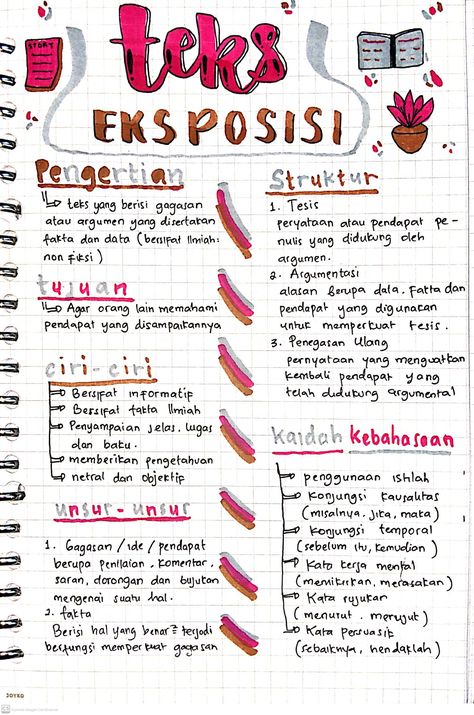 STORY
teks
EKSPOSISI
Pengertian
teks yang berisi gagasan
atau argumen yang disertakan
fakta dan data (bersifat ilmiah:
non fiksi)
tujuan
Agar orang lain memahami
pendapat yang disampaikannya
ciri-ciri
Bersifat informatif
Bersifat fakta Ilmiah
Penyampaian jelas, lugas
dan baku.
memberikan pengetahuan
netral dan objektif
unsur-unsur
1. Gagasan /ide / pendapat
berupa penilaian, komentar,
saran, dorongan dan bujukan
mengenai suatu hal.
2. fakta
Berisi hal yang benar² terjadi
berfungsi memperkuat gagasan
Struktur
1. Tesis
peryataan atau pendapat pe-
nulis yang didukung oleh
argumen.
2. Argumentasi
alasan berupa data, fakta dan
pendapat yang digunakan
untuk memperkuat tesis.
3. Penegasan Ulang
pernyataan yang menguatkan
kembali pendapat yang
telah didukung argumental
Kaidah Kebahasaan
penggunaan istilah
Konjungsi kausalitas
(misalnya, jika, maka)
Konjungsi temporal
(sebelum itu, kemudian)
Kata kerja mental
(memikirkan, merasakan)
Kata rujukan
(menurut, merujuk)
Kata Persuasif
(sebaiknya, hendaklah)
JOYKO